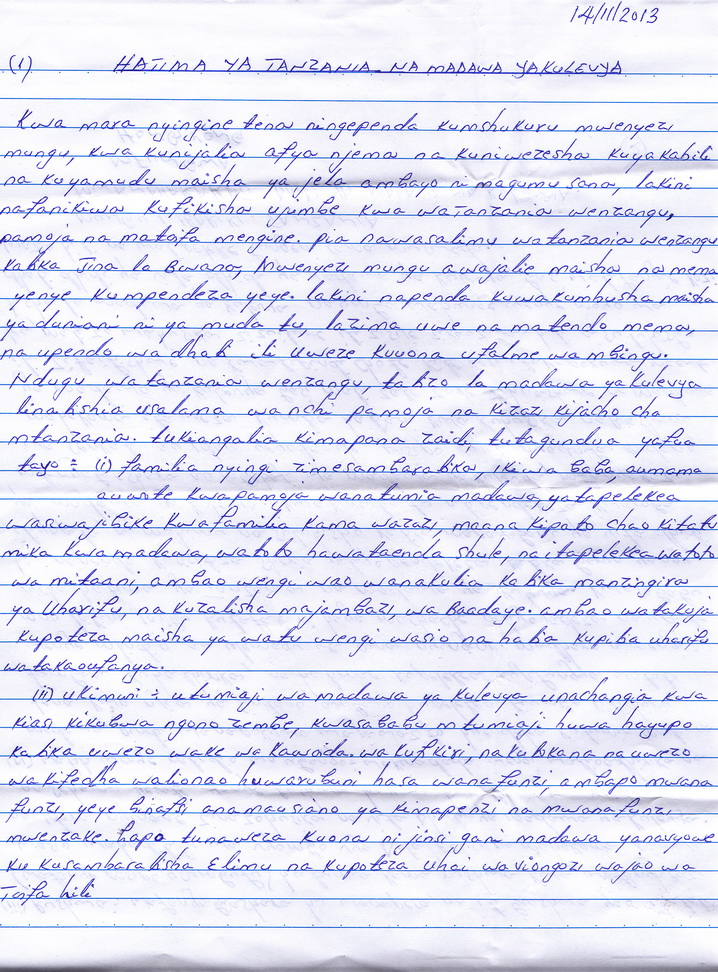 14/11/2013
(1) HATIMA YA TANZANIA NA MADAWA YAKULEVYA
Kwa mara nyingine tena ningependa kumshukuru mwenyezi
mungu, kwa kunijalia afya njema na kuniwezesha kuyakabili
na kuyamudu maisha ya jela ambayo ni magumu sana, lakini
nafanikiwa kufikisha ujumbe kwa waTanzania wenzangu,
pamoja na mataifa mengine. pia nawasalimu watanzania wenzangu
katika Jina la Bwana, Mwenyezi mungu awajalie maisha na mema
yenye kumpendeza yeye. lakini napenda kuwakumbusha maisha
ya duniani ni ya muda tu, lazima uwe na matendo mema,
na upendo wa dhati ili uweze kuuona ufalme wa mbingu.
Ndugu watanzania wenzangu, tatizo la madawa yakulevya
linatishia usalama wa nchi pamoja na kizazi kijacho cha
mtanzania. tukiangalia kimapana zaidi, tutagundua yafua
tayo ÷ (i) familia nyingi zimesambaratika, ikiwa baba, aumama
auwote kwapamoja wanatumia madawa, yatapelekea
wasiwajibike kwafamilia kama wazazi, maana kipato chao kitatu
mika kwa madawa, watoto hawataenda shule, na itapelekea watoto
wa mitaani, ambao wengi wao wanakulia katika mantingira
ya Uharifu, na kuzalisha majambazi, wa Baadaye. ambao watakuja
kupoteza maisha ya watu wengi wasio na hatia kupitia uharifu
watakaoufanya.
(ii) ukimwi ÷ utumiaji wa madawa ya kulevya unachangia kwa
kiasi kikubwa ngono zembe, kwasababu mtumiaji huwa hayupo
katika uwezo wake wa kawaida. wa kufikiri, na kutokana na uwezo
wa kifedha walionao huwarubuni hasa wanafunzi, ambapo mwana
funzi, yeye binafsi anamausiano ya kimapenzi na mwanafunzi
mwenzake. hapo tunaweza kuona ni jinsi gani madawa yanavyowe
ku kusambaratisha Elimu na kupoteza uhai wa viongozi wajao wa
Taifa hili